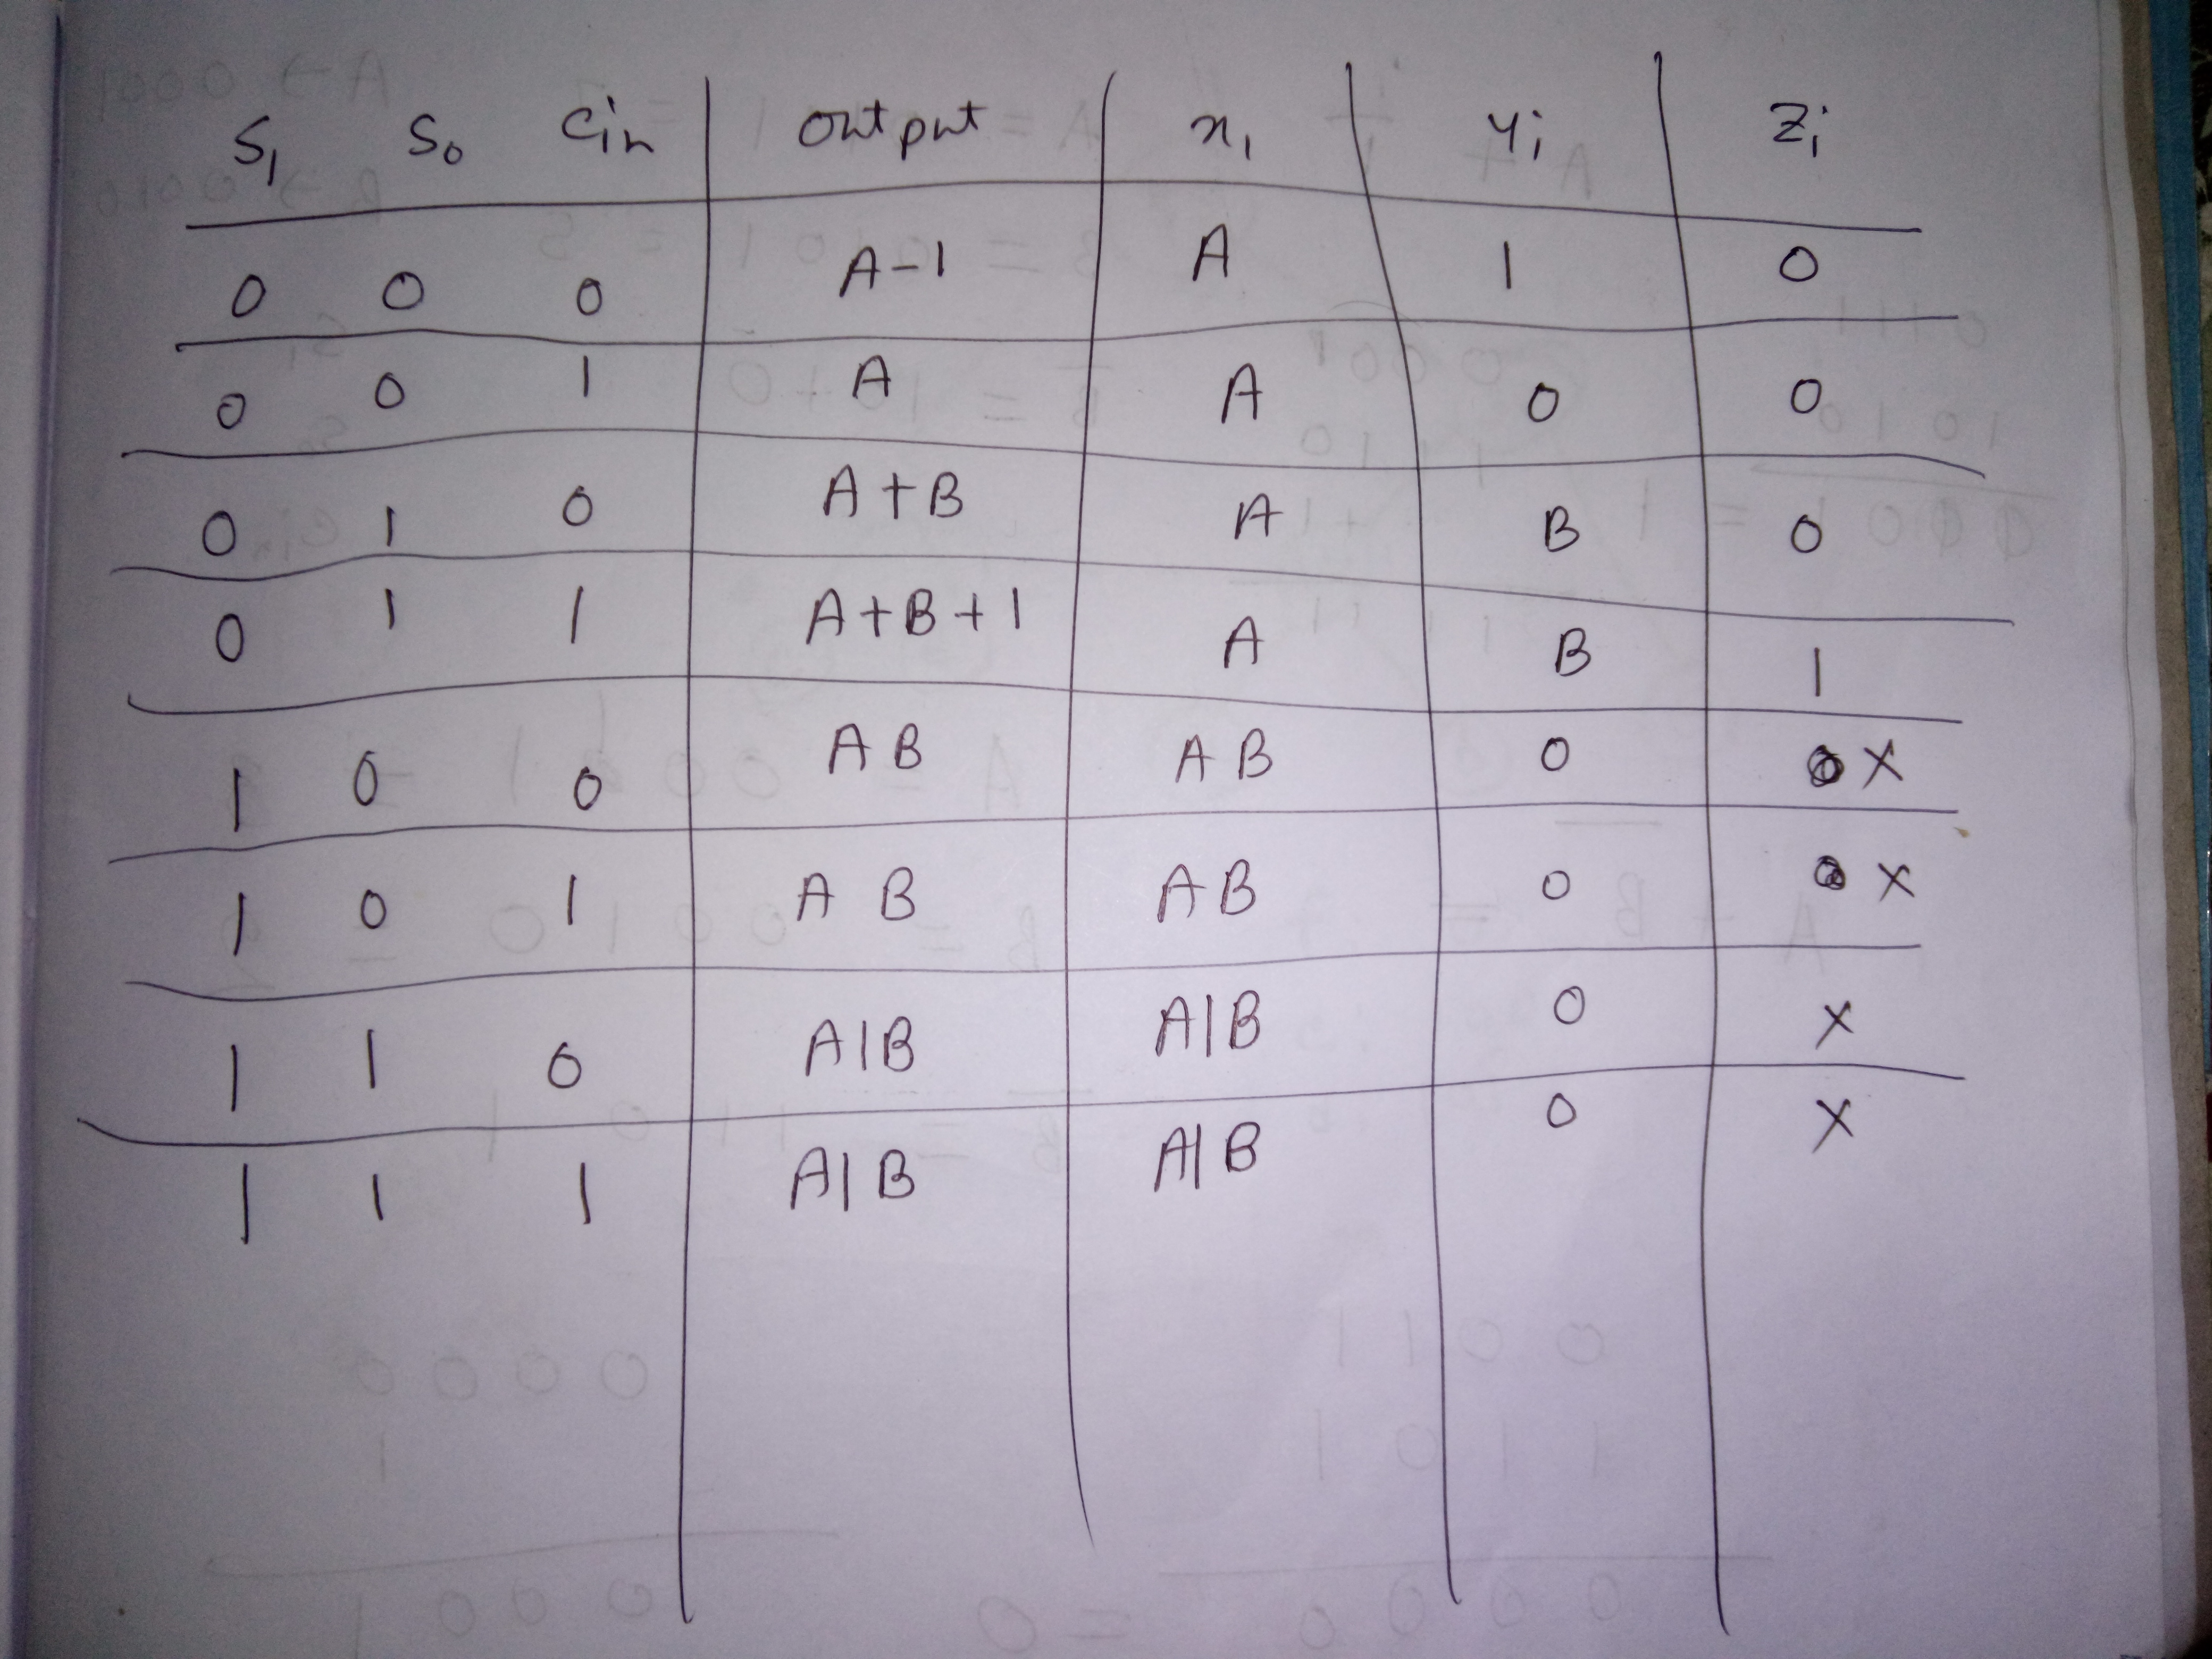 S₁ S₀ Cin output x₁ yi zi
0 0 0 A-1 A 1 0
0 0 1 A A 0 0
0 1 0 A+B A B 0
0 1 1 A+B+1 A B 1
1 0 0 AB AB 0 X
1 0 1 A B AB 0 X
1 1 0 A|B A|B 0 X
1 1 1 A|B A|B 0 X